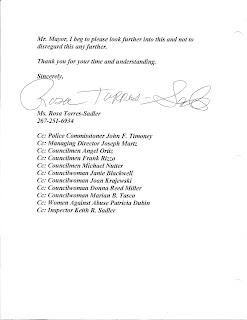 Mr. Mayor, I beg to please look further into this and not to
disregard this any further.
Thank you for your time and understanding.
Sincerely,
Rosa Torres-Sadler
Ms. Rosa Torres-Sadler
267-251-6934
Cc: Police Commissioner John F. Timoney
Cc: Managing Director Joseph Martz
Cc: Councilmen Angel Ortiz
Cc: Councilmen Frank Rizzo
Cc: Councilmen Michael Nutter
Cc: Councilwoman Janie Blackwell
Cc: Councilwoman Joan Krajewski
Cc: Councilwoman Donna Reed Miller
Cc: Councilwoman Marian B. Tasco
Cc: Women Against Abuse Patricia Dubin
Cc: Inspector Keith R. Sadler